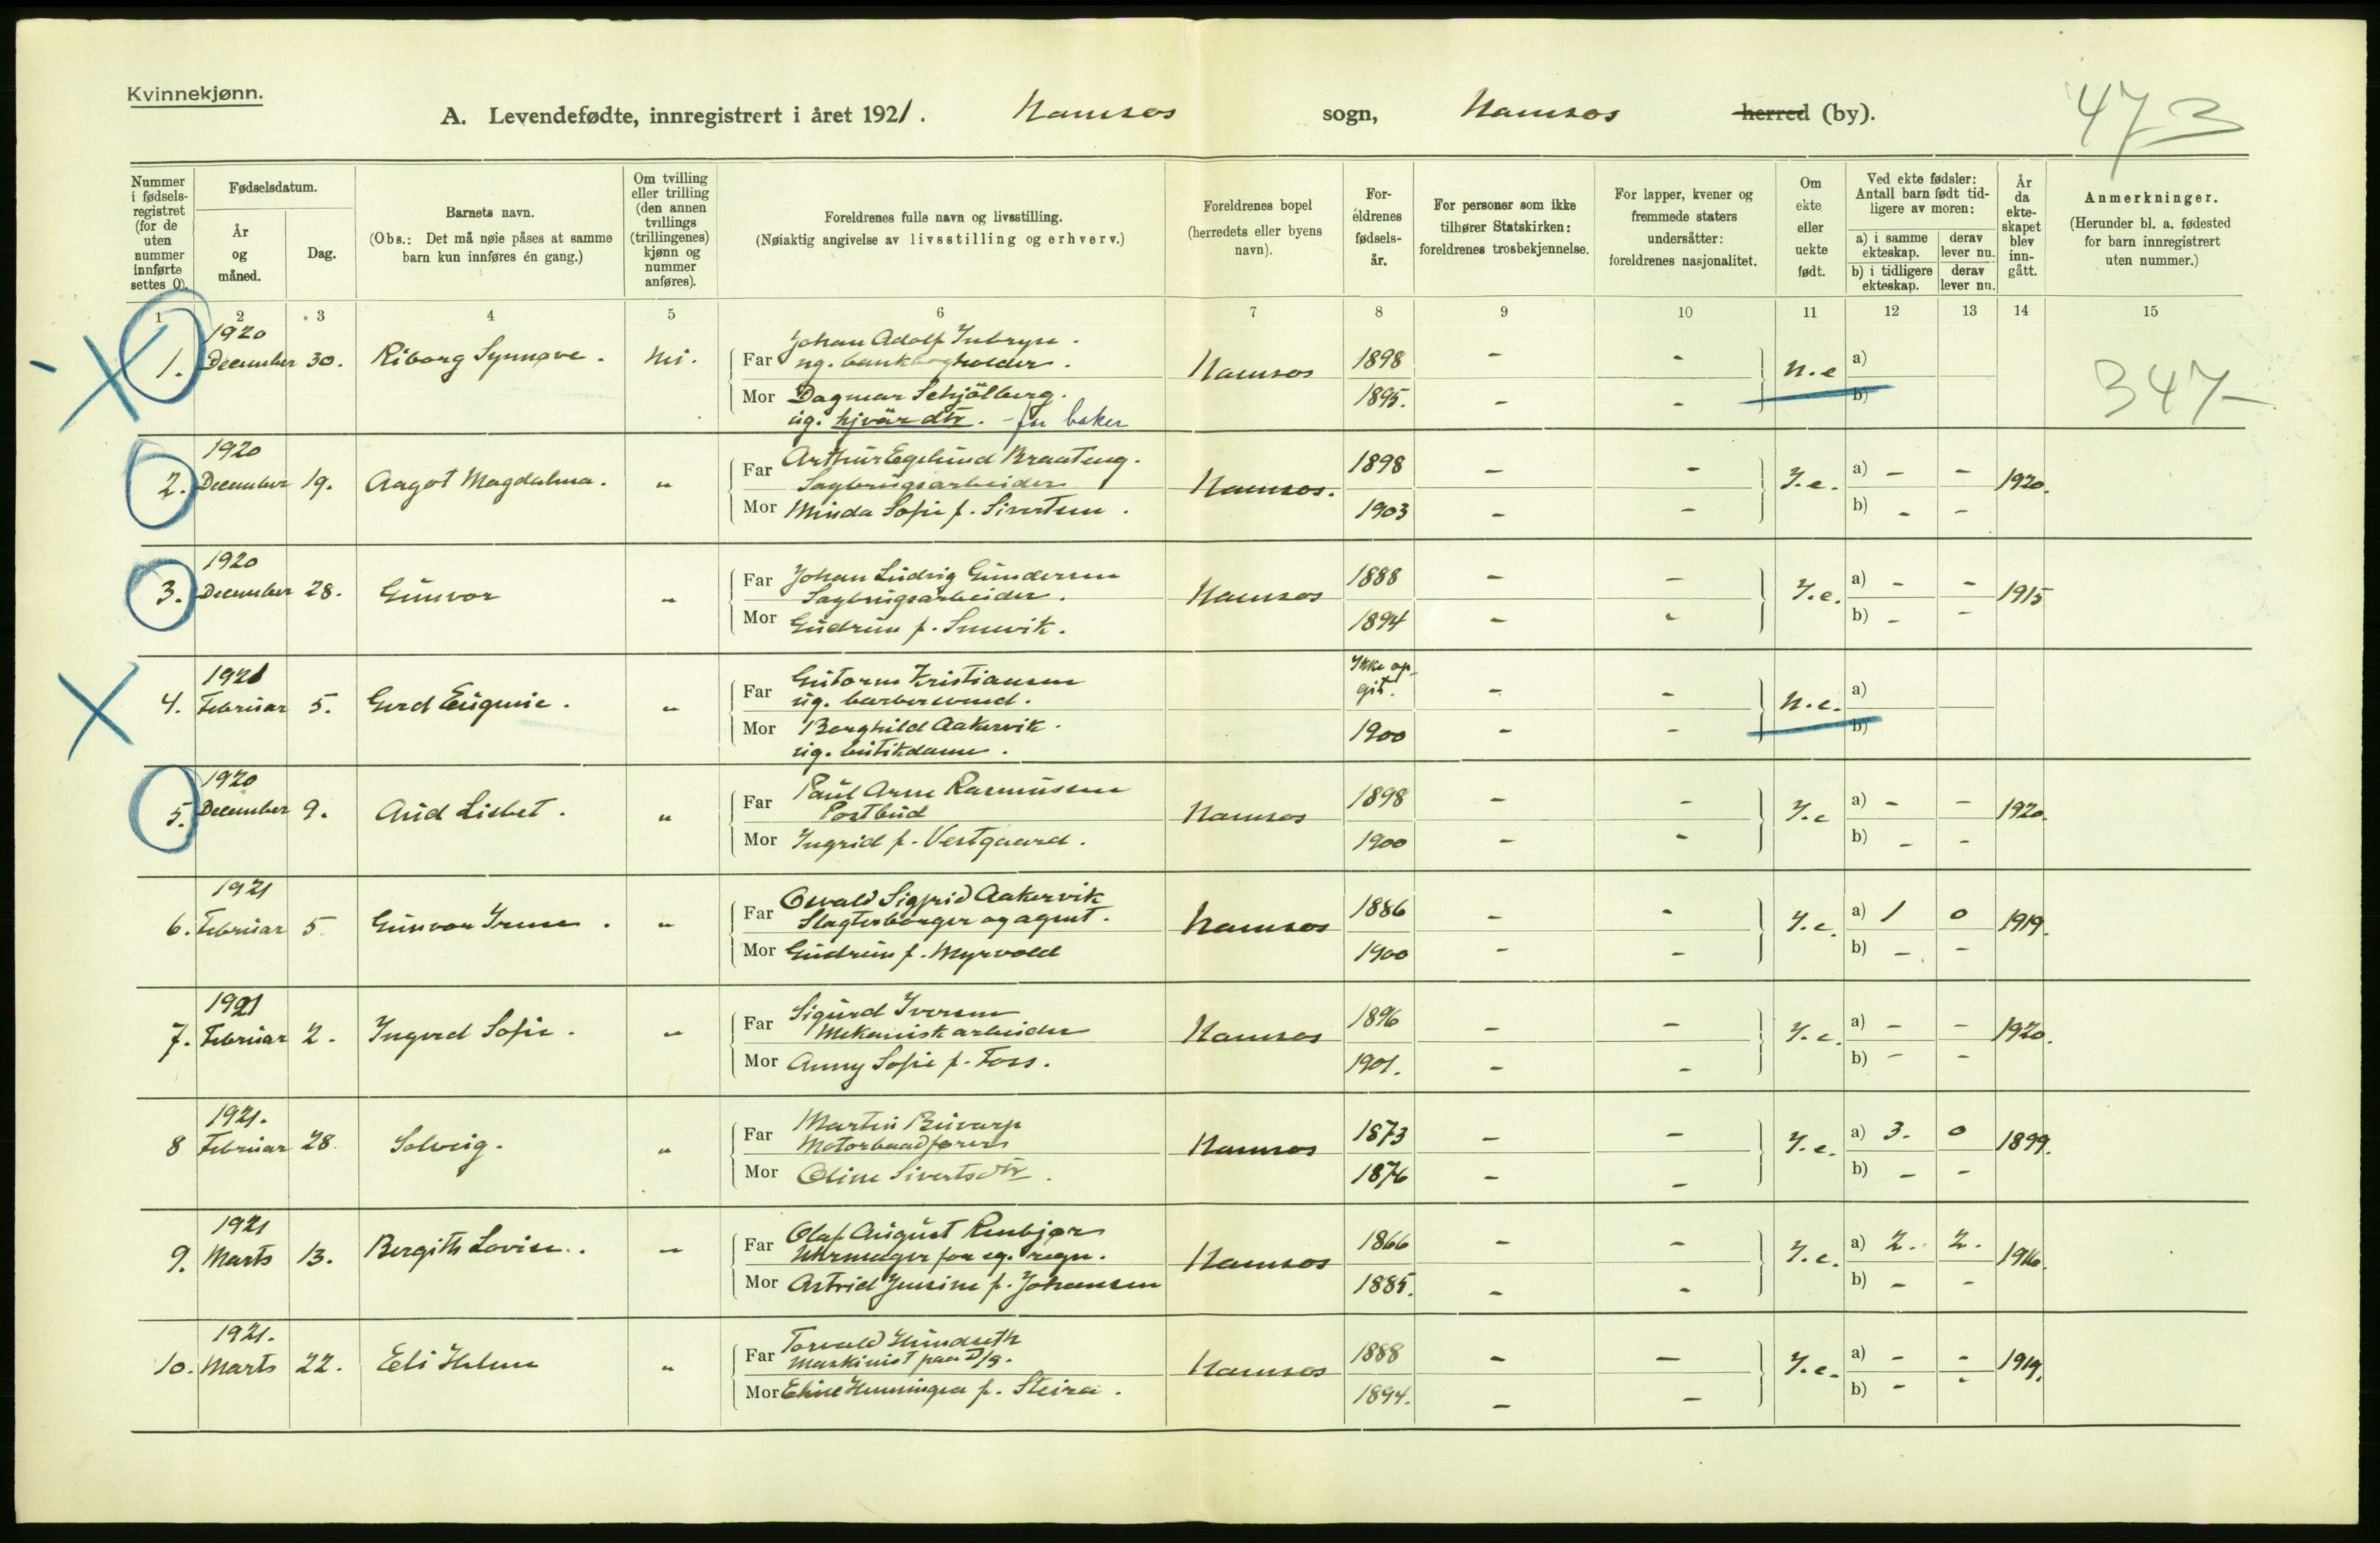 Kvinnekjønn.
A. Levendefødte, innregistrert i året 1921. Namsos sogn, Namsos herred (by).
473
Nummer i fødselsregistret (for de uten nummer innførte settes 0).
Fødselsdatum.
År og måned.
Dag.
Barnets navn.
(Obs.: Det må nøie påses at samme barn kun innføres én gang.)
Om tvilling eller trilling (den annen tvillings (trillingenes) kjønn og nummer anføres).
Foreldrenes fulle navn og livsstilling.
(Nøiaktig angivelse av livsstilling og erhverv.)
Foreldrenes bopel (herredets eller byens navn).
Foreldrenes fødselsår.
For personer som ikke tilhører Statskirken: foreldrenes trosbekjennelse.
For lapper, kvener og fremmede staters undersåtter: foreldrenes nasjonalitet.
Om ekte eller uekte født.
Ved ekte fødsler: Antall barn født tidligere av moren:
a) i samme ekteskap. derav lever nu.
b) i tidligere ekteskap. derav lever nu.
År da ekteskapet blev inngått.
Anmerkninger.
(Herunder bl. a. fødested for barn innregistrert uten nummer.)
1 2 3 4 5 6 7 8 9 10 11 12 13 14 15
1920
1. December 30. Riborg Synnøve. Nei.
Far Johan Adolf
ug. bankbogholder. Namsos 1898 - - n.e a)
Mor Dagmar Schjölberg. 1895. - - b)
ug. hjvär dtr. - far baker
347
1920
2. December 19. Aagot Magdalena. "
Far Arthur Egelund Braateng. 1898 - - Y.e. a) - - 1920.
Sagbrugsarbeider Namsos.
Mor Minda Sofie f. Sivertsen. 1903 - - b) - -
1920
3. December 28. Gunvor "
Far Johan Ludvig Gundersen 1888 - - Y.e. a) - - 1915
Sagbrugsarbeider. Namsos
Mor Gudrun f. Smevik. 1894 - - b) - -
1921
4. Februar 5. Gerd Eugenie. "
Far Gutorm Kristiansen Ikke opgit. - - n.e. a)
ug. barbersvend.
Mor Borghild Aakervik. 1900 - - b)
ug. butikdame.
1920
5. December 9. Aud Lisbet. "
Far Paul Arne Rasmussen 1898 - - Y.e a) - - 1920.
Postbud Namsos
Mor Ingrid f. Vestgaard. 1900 - - b) - -
1921
6. Februar 5 Gunvor Irene. "
Far Osvald Sigfrid Aakervik 1886 - - Y.e. a) 1 0 1919.
Slagterborger og agent. Namsos
Mor Gudrun f. Myrvold 1900 - - b) - -
1921
7. Februar 2. Ingerd Sofie. "
Far Sigurd Iversen 1896 - - Y.e. a) - - 1920.
Mekanisk arbeider Namsos
Mor Anny Sofie f. Foss. 1901. - - b) - -
1921.
8 Februar 28. Solveig. "
Far Martin 1873 - - Y.e. a) 3. 0 1899.
Motorbaadfører Namsos
Mor Oline Sivertsdtr. 1876 - - b) - -
1921
9. Marts 13. Bergith Lovise. "
Far Olaf August Renbjør 1866 - - Y.e. a) 2. 2. 1916.
Uhrmager for eg. regn. Namsos
Mor Astrid Jensine f. Johansen 1885. - - b) - -
1921.
10. Marts 22. Eli Helene "
Far Torvald Hundseth 1888 - - Y.e. a) - - 1919.
Maskinist paa D/S. Namsos
Mor Eline Henningea f. Steira. 1894. - - b) - -